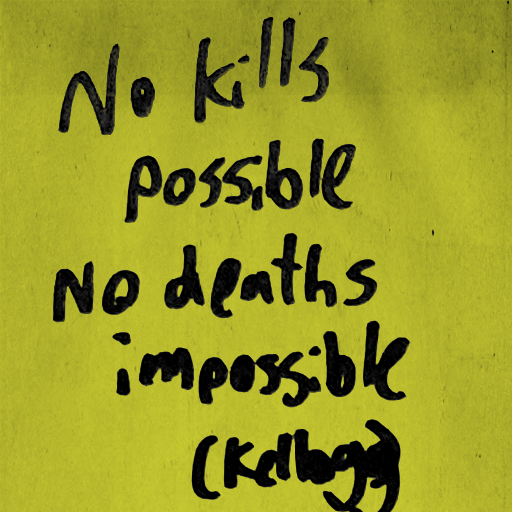 No kills
possible
No deaths
impossible
(Kellogg)